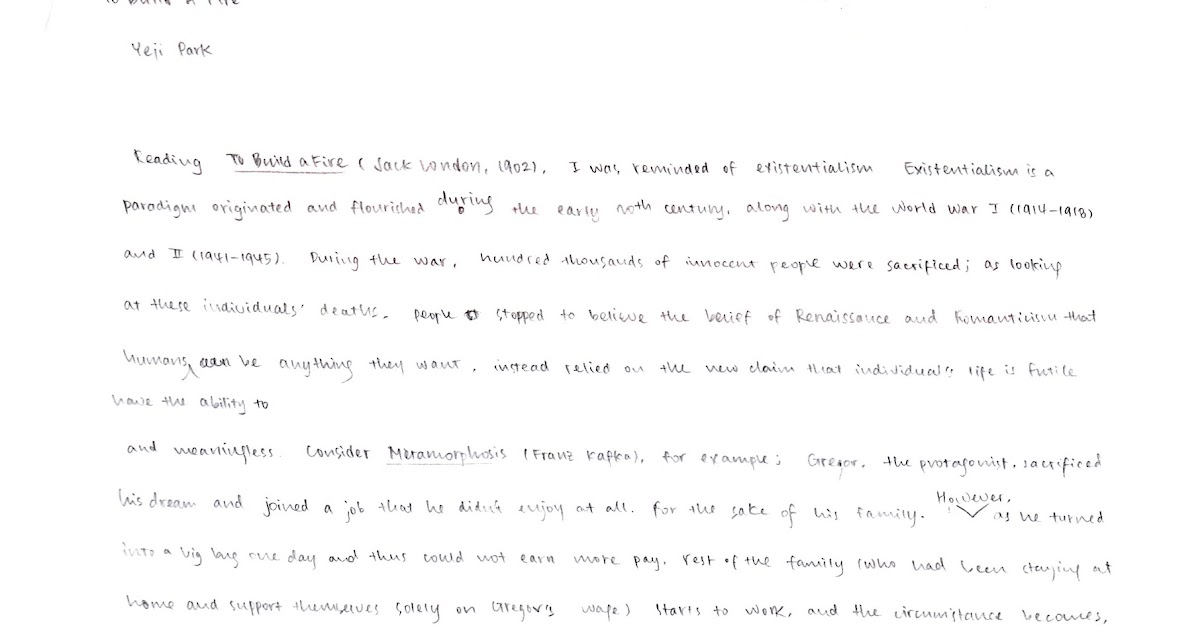 To Build A Fire
Yeji Park
Reading To Build a Fire (Jack London, 1902), I was reminded of existentialism Existentialism is a
paradigm originated and flourished during the early 20th century, along with the World War I (1914-1918)
and II (1941-1945). During the war, hundred thousands of innocent people were sacrificed; as looking
at these individuals' deaths, people stopped to believe the belief of Renaissance and Romanticism that
humans can be anything they want, instead relied on the new claim that individual's life is futile
have the ability to
and meaningless. Consider Metamorphosis (Franz Kafka), for example; Gregor, the protagonist, sacrificed
his dream and joined a job that he didn't enjoy at all. for the sake of his family. However, as he turned
into a big bug one day and thus could not earn more pay, rest of the family (who had been staying at
home and support themselves solely on Gregor's wage) starts to work, and the circumstance becomes,